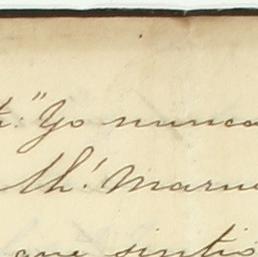 : "Yo nunca
th! Maru
que sintio